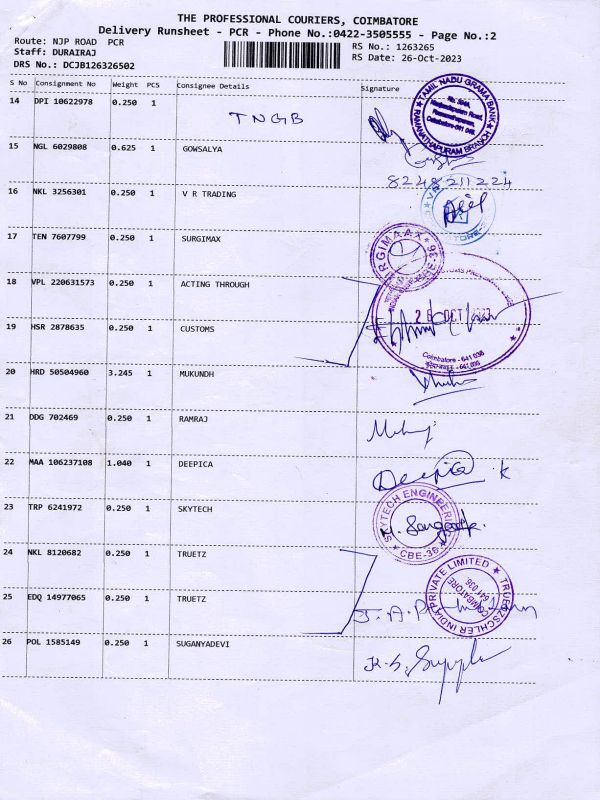 THE PROFESSIONAL COURIERS, COIMBATORE
Delivery Runsheet - PCR - Phone No.:0422-3505555 - Page No.:2
Route: NJP ROAD PCR
Staff: DURAIRAJ
DRS No.: DCJB126326502
RS No.: 1263265
RS Date: 26-Oct-2023
S No Consignment No Weight PCS Consignee Details Signature
14 DPI 10622978 0.250 1 TNGB
TAMIL NADU GRAMA BANK
RAMANATHAPURAM BRANCH
15 NGL 6029808 0.625 1 GOWSALYA
8248211224
16 NKL 3256301 0.250 1 V R TRADING
17 TEN 7607799 0.250 1 SURGIMAX
18 VPL 220631573 0.250 1 ACTING THROUGH
OCT
19 HSR 2878635 0.250 1 CUSTOMS
Coimbatore - 641 036
20 HRD 50504960 3.245 1 MUKUNDH
21 DDG 702469 0.250 1 RAMRAJ
22 MAA 106237108 1.040 1 DEEPICA
Deepica K
23 TRP 6241972 0.250 1 SKYTECH
SKYTECH ENGINEERING
CBE-36
24 NKL 8120682 0.250 1 TRUETZ
25 EDQ 14977065 0.250 1 TRUETZ
TRUETZSCHLER INDIA PRIVATE LIMITED
COIMBATORE
641 036
26 POL 1585149 0.250 1 SUGANYADEVI